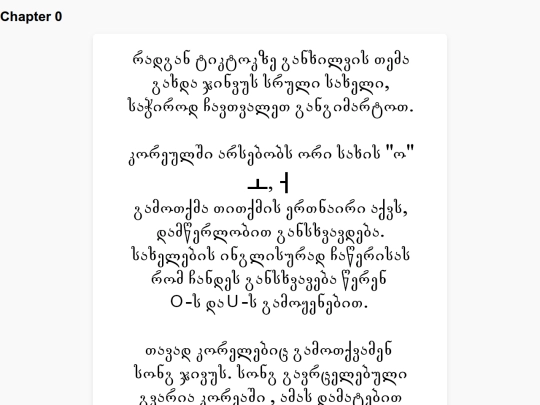 Chapter 0
რადგან ტიკტოკზე განხილვის თემა
გახდა ჯინვუს სრული სახელი,
საჭიროდ ჩავთვალეთ განგიმარტოთ.
კორეულში არსებობს ორი სახის "ო"
ㅗ, ㅓ
გამოთქმა თითქმის ერთნაირი აქვს,
დამწერლობით განსხვავდება.
სახელების ინგლისურად ჩაწერისას
რომ ჩანდეს განსხვავება წერენ
O-ს და U-ს გამოყენებით.
თავად კორელებიც გამოთქვამენ
სონგ ჯივუს. სონგ გავრცელებული
გვარია კორეაში , ამას დამატებით